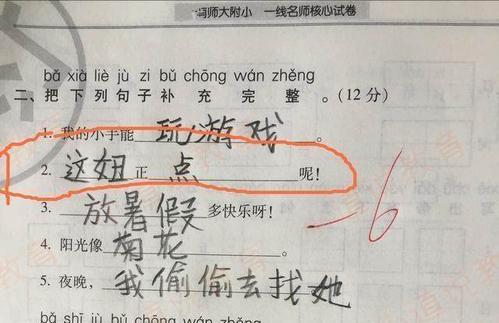 师大附小 一线名师核心试卷
bǎ xià liè jù zi bǔ chōng wán zhěng
二、把下列句子补充完整。(12分)
1. 我的小手能玩游戏。
2. 这妞正点呢!
3. 放暑假多快乐呀!
4. 阳光像菊花。
5. 夜晚,我偷偷去找她
-6
bǎ shì jù bǔ chōng wán zhěng